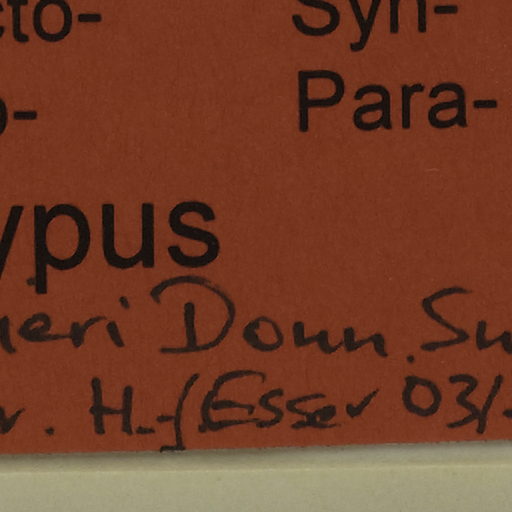 cto- Syn-
o- Para-
ypus
ieri Donn. Sm
r. H.-J. Esser 03/